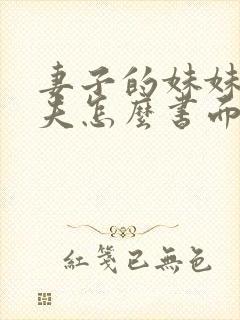 妻子的妹妹
夫怎麼書面
紅箋已無色